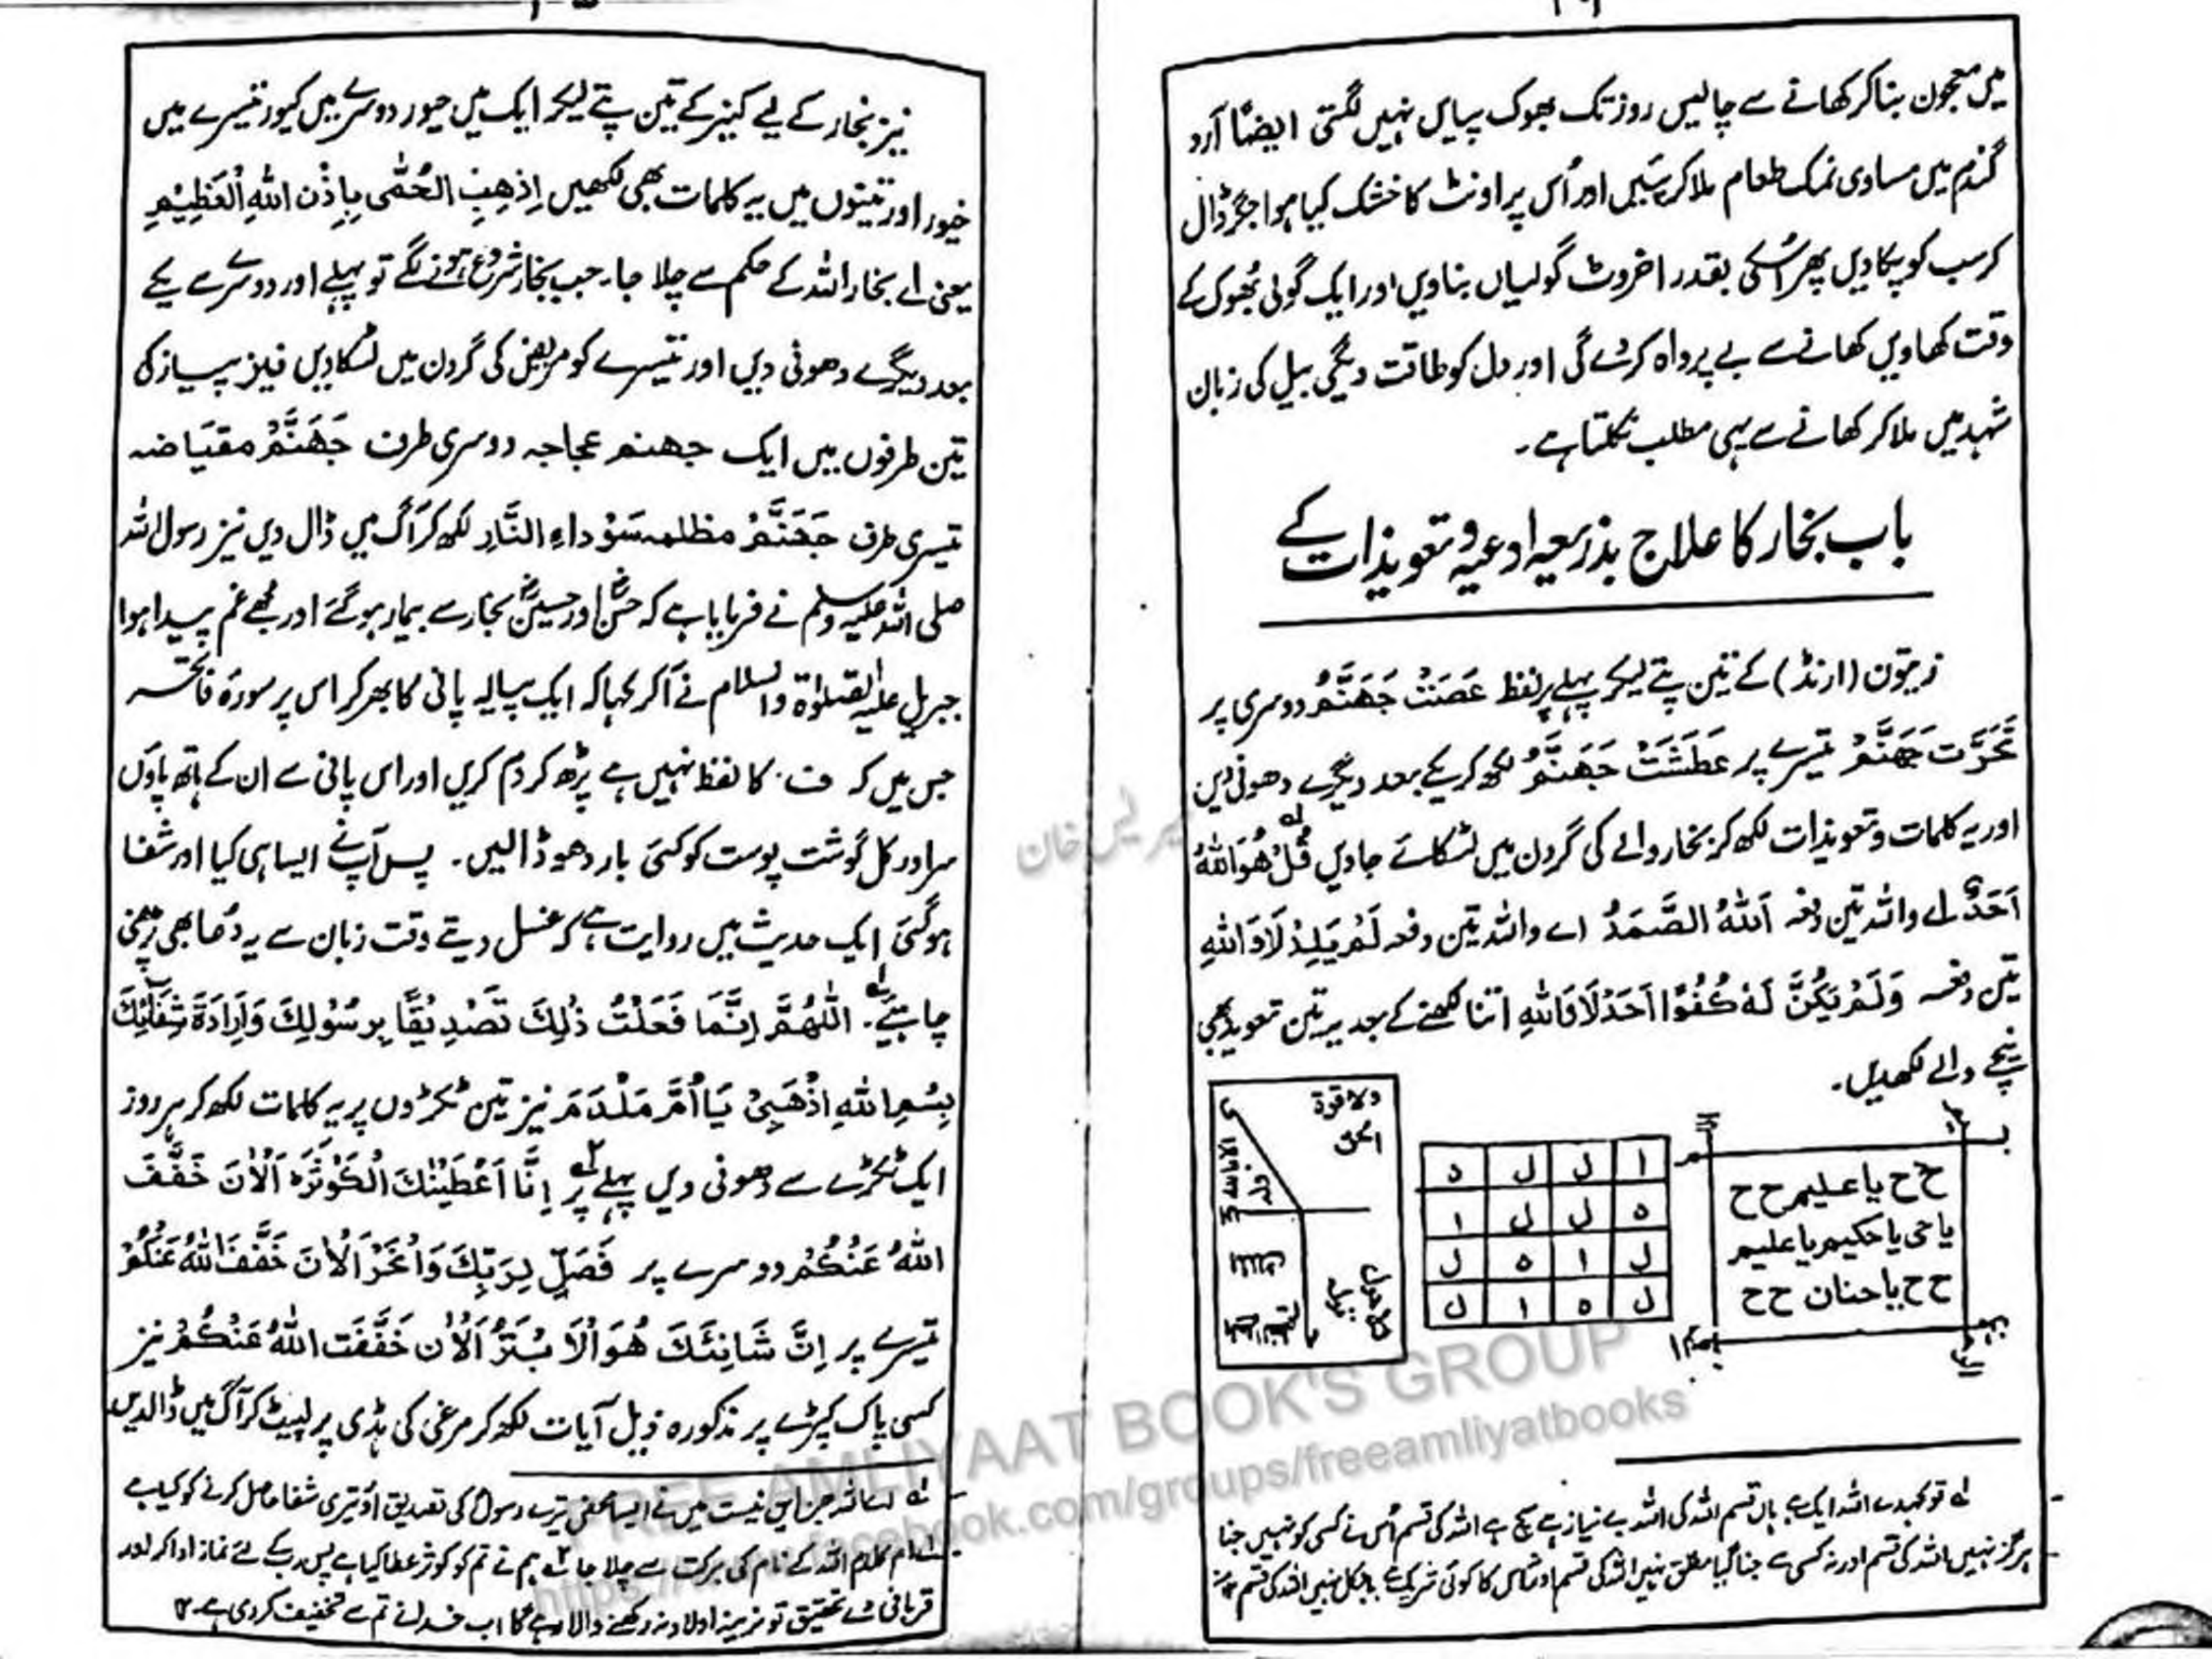 میں معجون بنا کر کھانے سے چالیس روز تک بھوک پیاس نہیں لگتی ایضاً آرد
گندم میں مساوی نمک طعام ملا کر پیسیں اور اُس پر اونٹ کا خشک کیا ہوا جگر ڈال
کر سب کو پکادیں پھر اُسکی بقدر اخروٹ گولیاں بناویں اور ایک گولی بھوک کے
وقت کھاویں کھانے سے بے پرواہ کردے گی اور دل کو طاقت دیگی بیل کی زبان
شہد میں ملا کر کھانے سے یہی مطلب نکلتا ہے۔
باب بخار کا علاج بذریعہ ادعیہ و تعویذات کے
زیتون (ارنڈ) کے تین پتے لیکر پہلے پر لفظ عَصَتْ جَهَنَّمُ دوسری پر
تَحَرَّت جَهَنَّمُ تیسرے پر عَطَشَتْ جَهَنَّمُ لکھ کر یکے بعد دیگرے دھونی دیں
اور یہ کلمات و تعویذات لکھ کر بخار والے کی گردن میں لٹکائے جاویں قُلْ هُوَاللهُ
اَحَدٌ اے واللہ تین دفعہ اَللهُ الصَّمَدُ اے واللہ تین دفعہ لَمْ یَلِدْ لَا وَاللهِ
تین دفعہ وَلَمْ یَکُنْ لَهٗ کُفُوًا اَحَدْ لَا وَاللهِ اتنا لکھنے کے بعد یہ تین تعویذ بھی
نیچے والے لکھدیں۔
ح ح یا علیم ح ح
یا حی یا حکیم یا علیم
ح ح یا حنان ح ح
ا ل ل ہ
ہ ل ل ا
ل ا ہ ل
ل ہ ا ل
ولا قوة
لہ تو کہدے اللہ ایک ہے ہاں قسم اللہ کی اللہ بے نیاز ہے سچ ہے اللہ کی قسم اُس نے کسی کو نہیں جنا
ہرگز نہیں اللہ کی قسم اور نہ کسی سے جنا گیا مطلق نہیں اللہ کی قسم اور نہ اس کا کوئی شریک ہے بالکل نہیں اللہ کی قسم
نیز بخار کے لیے کنیر کے تین پتے لیکر ایک میں حیور دوسرے میں کیور تیسرے میں
خیور اور تینوں میں یہ کلمات بھی لکھیں اِذهِبِ الحُمّٰی بِاِذْنِ اللهِ الْعَظِیْمِ
یعنی اے بخار اللہ کے حکم سے چلا جا۔ جب بخار شروع ہونے لگے تو پہلے اور دوسرے یکے
بعد دیگرے دھونی دیں اور تیسرے کو مریض کی گردن میں لٹکادیں نیز پیاز کی
تین طرفوں میں ایک جهنم عجاجہ دوسری طرف جَهَنَّمُ مقیاضہ
تیسری طرف جَهَنَّمُ مظلمہ سَوْداءِ النَّارِ لکھ کر آگ میں ڈال دیں نیز رسول اللہ
صلی اللہ علیہ وسلم نے فرمایا ہے کہ حسنؓ اور حسینؓ بخار سے بیمار ہوگئے اور مجھے غم پیدا ہوا
جبریل علیہ الصلوٰة والسلام نے آکر کہا کہ ایک پیالہ پانی کا بھر کر اس پر سورۂ فاتحہ
جس میں کہ ف کا لفظ نہیں ہے پڑھ کر دم کریں اور اس پانی سے ان کے ہاتھ پاؤں
سر اور کل گوشت پوست کو کئی بار دھو ڈالیں۔ پس آپ نے ایسا ہی کیا اور شفا
ہوگئی ایک حدیث میں روایت ہے کہ غسل دیتے وقت زبان سے یہ دُعا بھی پڑھنی
چاہئے۔ اَللّٰهُمَّ اِنَّمَا فَعَلْتُ ذٰلِكَ تَصْدِیْقًا بِرسُوْلِكَ وَاِرَادَةَ شِفَائِكَ
بِسْمِ اللهِ اذْهَبِیْ یَا اُمَّ مَلْدَمَ نیز تین ٹکڑوں پر یہ کلمات لکھ کر ہر روز
ایک ٹکڑے سے دھونی دیں پہلے پر اِنَّا اَعْطَیْنٰكَ الْکَوْثَرَ اَلْاٰنَ خَفَّفَ
اللهُ عَنْکُمْ دوسرے پر فَصَلِّ لِرَبِّكَ وَانْحَرْ اَلْاٰنَ خَفَّفَ اللهُ عَنْکُمْ
تیسرے پر اِنَّ شَانِئَكَ هُوَ الْاَبْتَرُ اَلْاٰن خَفَّفَت اللهُ عَنْکُمْ نیز
کسی پاک کپڑے پر مذکورہ ذیل آیات لکھ کر مرغی کی ہڈی پر لپیٹ کر آگ میں ڈالدیں
لہ اے اللہ جز این نیست میں نے ایسا محض تیرے رسول کی تصدیق اور تیری شفا حاصل کرنے کو کیا ہے
اللہ کے نام کی برکت سے چلا جا ہم نے تم کو کوثر عطا کیا ہے پس رب کے لئے نماز ادا کر اور
قربانی دے تحقیق تو نرینہ اولاد نہ رکھنے والا رہے گا اب خدا نے تم سے تخفیف کردی ہے۔ ۱۲
FREE AMLIYAAT BOOK'S GROUP
https://www.facebook.com/groups/freeamliyatbooks